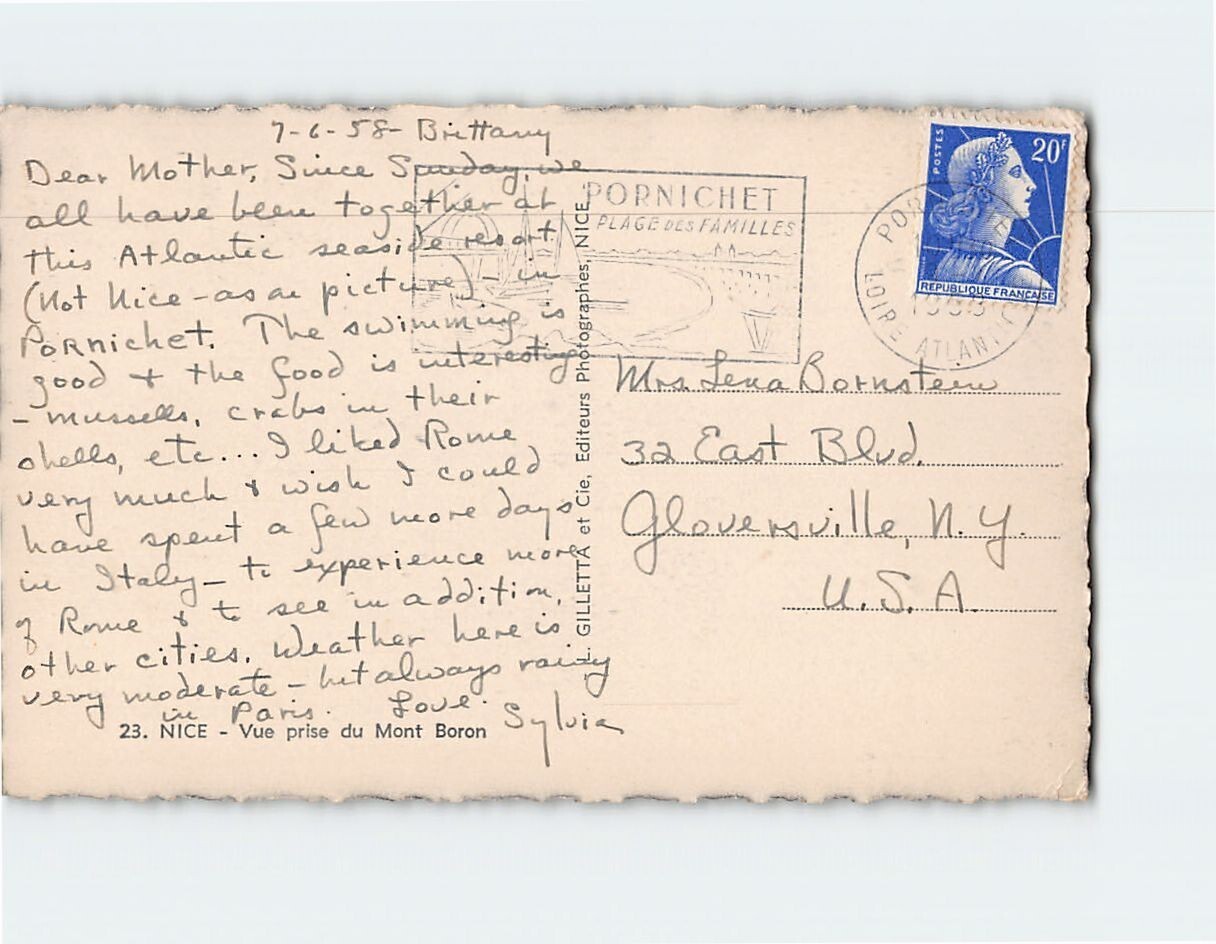 7-6-58- Brittany
Dear Mother, Since Sunday, we
all have been together at
this Atlantic seaside resort
(Not Nice - as on picture) - in
Pornichet. The swimming is
good & the food is interesting
- mussells, crabs in their
shells, etc... I liked Rome
very much & wish I could
have spent a few more days
in Italy - to experience more
of Rome & to see in addition,
other cities. Weather here is
very moderate - but always rainy
in Paris. Love.
Sylvia
23. NICE - Vue prise du Mont Boron
GILLETTA et Cie, Editeurs Photographes, NICE
PORNICHET
PLAGE DES FAMILLES
LOIRE ATLANTIQUE
POSTES
20F
REPUBLIQUE FRANÇAISE
Mrs. Lena Bornstein
32 East Blvd.
Gloversville, N.Y.
U.S.A.